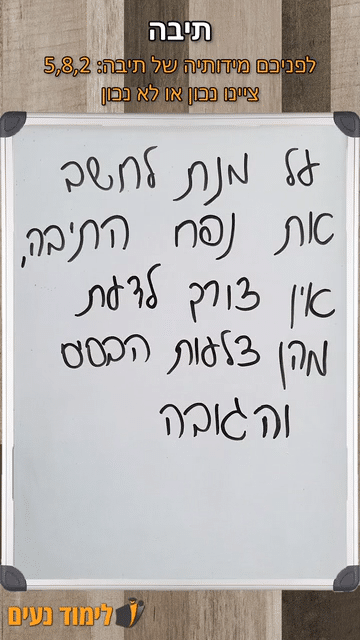 תיבה
לפניכם מידותיה של תיבה: 5,8,2
ציינו נכון או לא נכון
על מנת לחשב
את נפח התיבה,
אין צורך לדעת
מהן צלעות הבסיס
והגובה
לימוד נעים